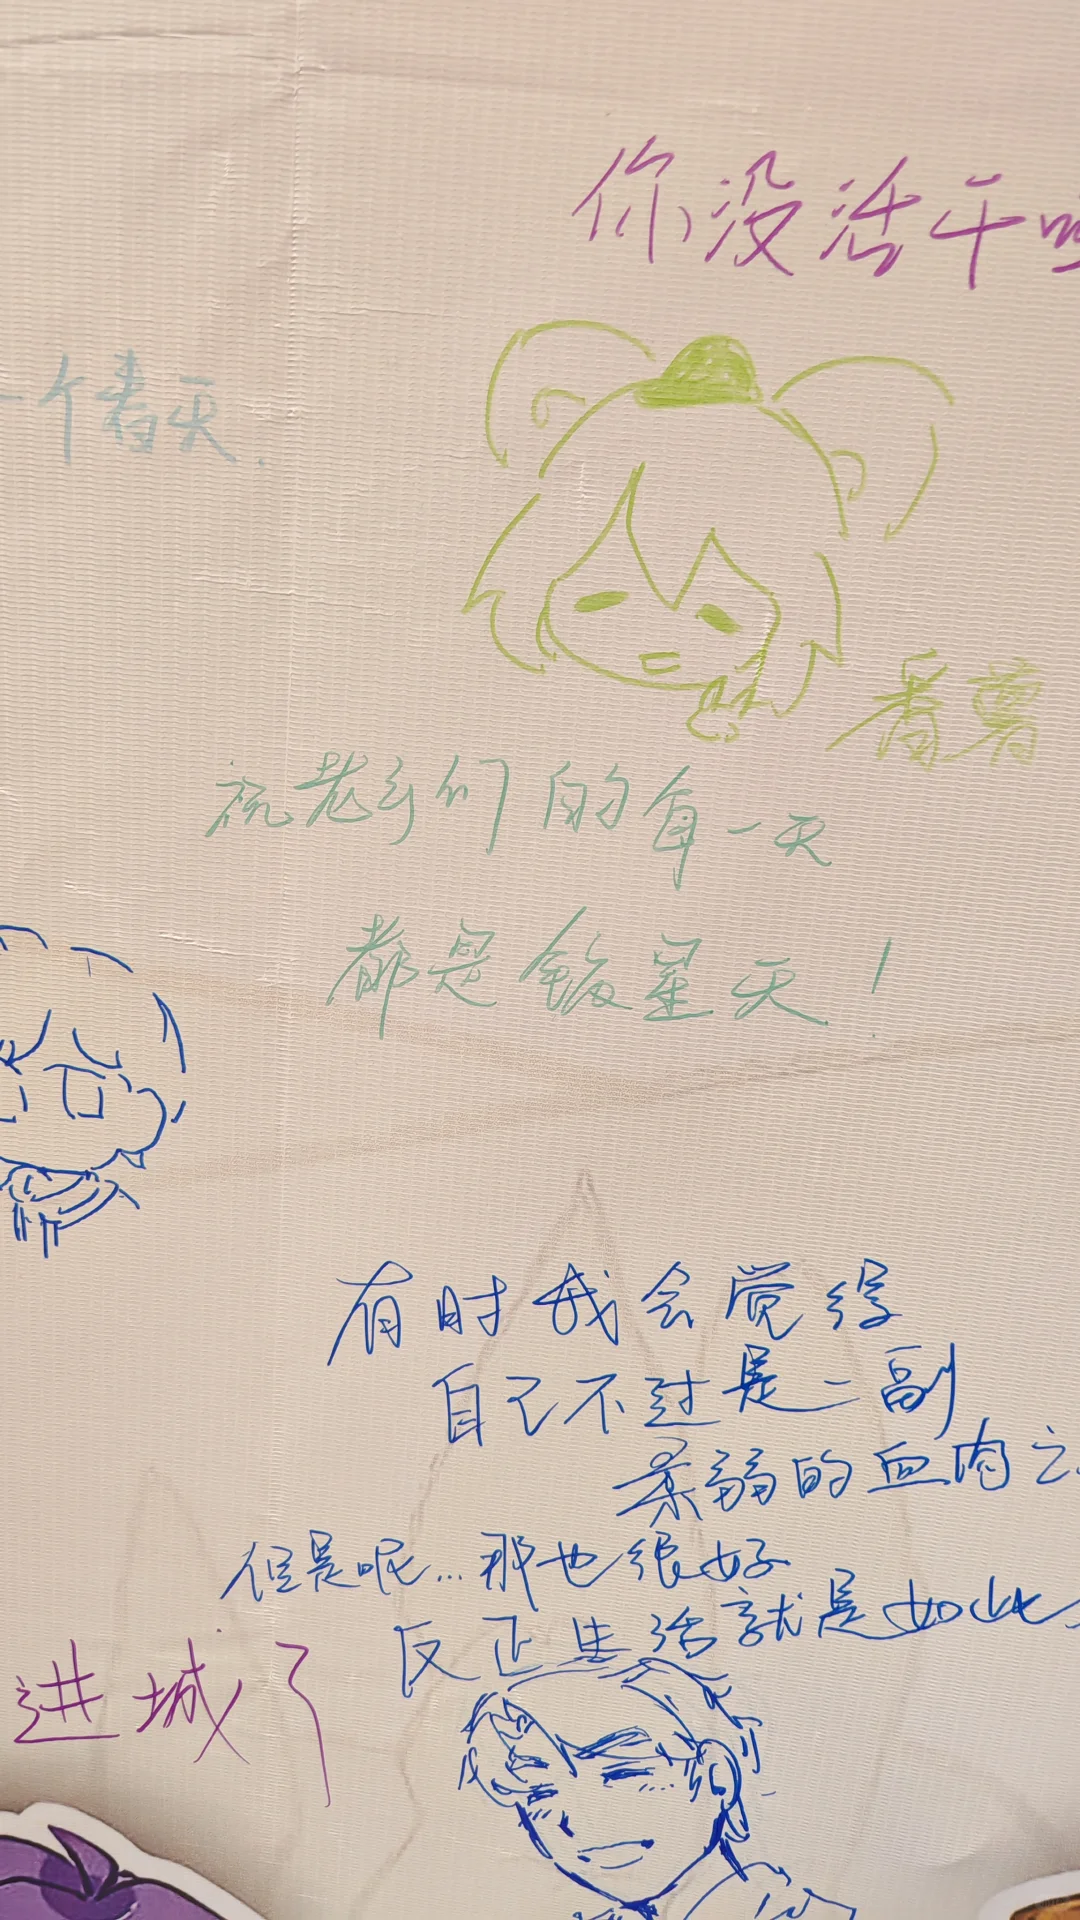 你没活干吗
一个春天.
番薯
祝老乡们的每一天
都是银星天!
有时我会觉得
自己不过是一副
柔弱的血肉之
但是呢...那也很好
反正生活就是如此
进城了